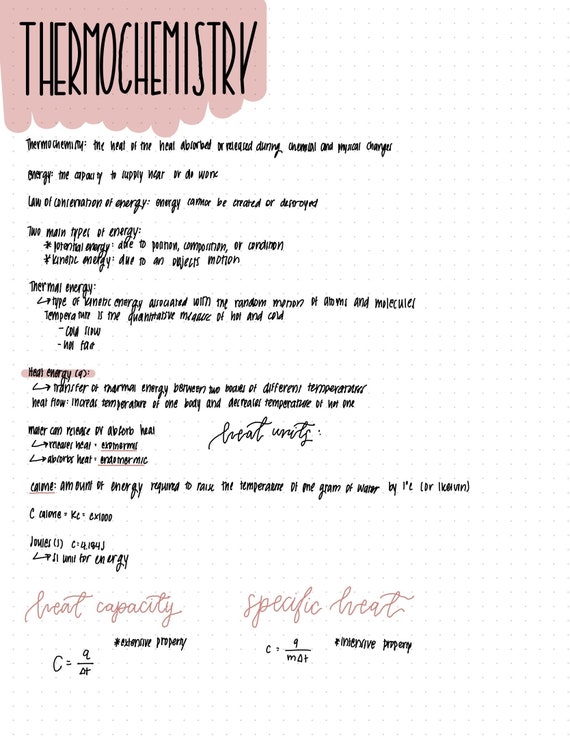 THERMOCHEMISTRY
Thermochemistry: the heat of the heat absorbed or released during chemical and physical changes
energy: the capacity to supply hear or do work
Law of conservation of energy: energy cannot be created or destroyed
Two main types of energy:
*potential energy: due to position, composition, or condition
*kinetic energy: due to an objects motion
Thermal energy:
↳type of kinetic energy associated with the random motion of atoms and molecules
Temperature is the quantitative measure of hot and cold
- cold slow
- hot fast
Heat energy (q):
↳ transfer of thermal energy between two bodies of different temperatures
heat flow: increas temperature of one body and decreases temperature of hot one
mater can release or absorb heat
↳ releases heat = exothermic
↳ absorbs heat = endothermic
heat units:
calorie: amount of energy required to raise the temperature of one gram of water by 1°C (or 1kelvin)
C calorie = Kc = cx1000
Joules(s) C=4.184J
↳ SI unit for energy
heat capacity
*extensive property
C = q/Δt
specific heat
*intensive property
c = q/mΔt